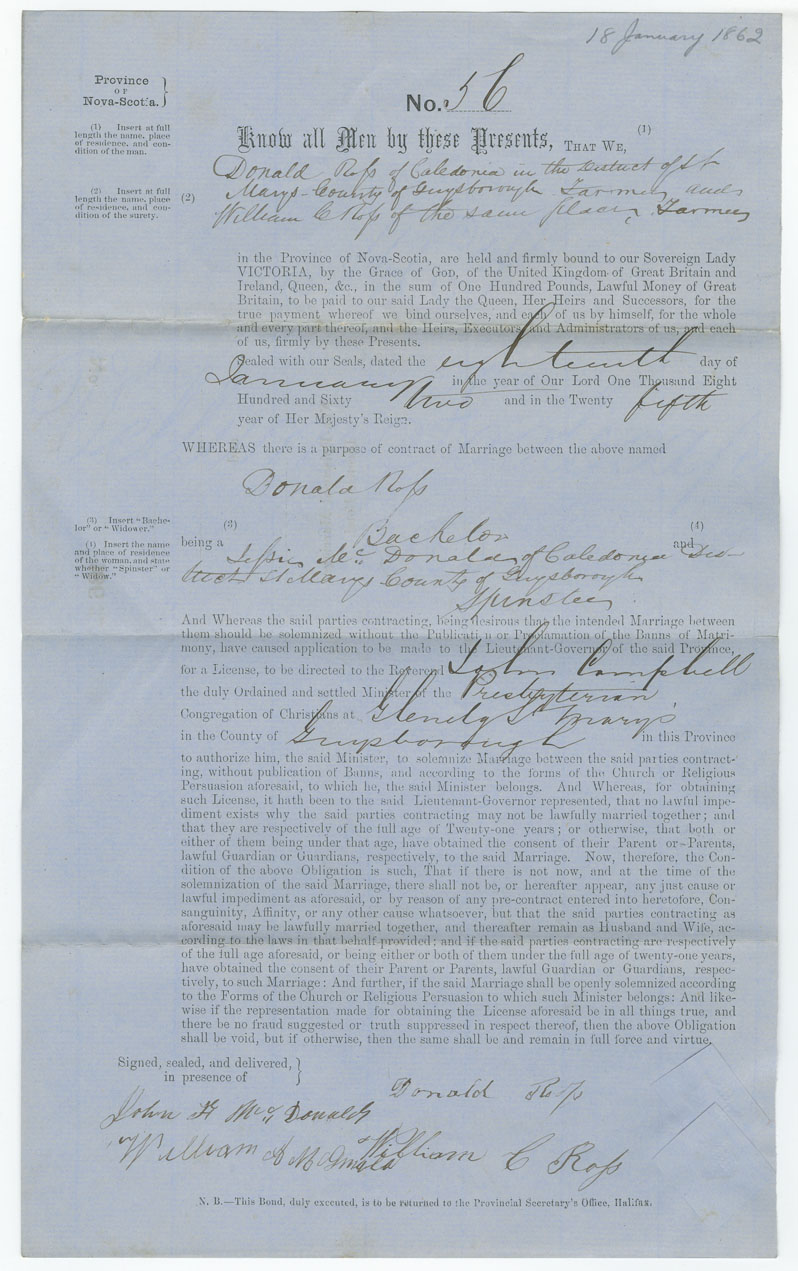 18 January 1862
Province
OF
Nova-Scotia.
No. 56
(1) Insert at full
length the name, place
of residence, and con-
dition of the man.
Know all Men by these Presents, THAT WE, (1)
Donald Ross of Caledonia in the District of St
(2) Insert at full
length the name, place
of residence, and con-
dition of the surety.
(2)
Marys County of Guysborough Farmer and
William C Ross of the same place, Farmer
in the Province of Nova-Scotia, are held and firmly bound to our Sovereign Lady
VICTORIA, by the Grace of GOD, of the United Kingdom of Great Britain and
Ireland, Queen, &c., in the sum of One Hundred Pounds, Lawful Money of Great
Britain, to be paid to our said Lady the Queen, Her Heirs and Successors, for the
true payment whereof we bind ourselves, and each of us by himself, for the whole
and every part thereof, and the Heirs, Executors and Administrators of us, and each
of us, firmly by these Presents.
Sealed with our Seals, dated the eighteenth day of
January in the year of Our Lord One Thousand Eight
Hundred and Sixty two and in the Twenty fifth
year of Her Majesty's Reign.
WHEREAS there is a purpose of contract of Marriage between the above named
Donald Ross
(3) Insert "Bache-
lor" or "Widower."
(4) Insert the name
and place of residence
of the woman, and state
whether "Spinster" or
"Widow."
(3) (4)
being a Bachelor and
Jessie McDonald of Caledonia Dis-
trict St Marys County of Guysborough
Spinster
And Whereas the said parties contracting, being desirous that the intended Marriage between
them should be solemnized without the Publicati n or Proclamation of the Banns of Matri-
mony, have caused application to be made to the Lieutenant-Governor of the said Province,
for a License, to be directed to the Reverend John Campbell
the duly Ordained and settled Minister of the Presbyterian
Congregation of Christians at Glenelg St Mary's
in the County of Guysborough in this Province
to authorize him, the said Minister, to solemnize Marriage between the said parties contract-
ing, without publication of Banns, and according to the forms of the Church or Religious
Persuasion aforesaid, to which he, the said Minister belongs. And Whereas, for obtaining
such License, it hath been to the said Lieutenant-Governor represented, that no lawful impe-
diment exists why the said parties contracting may not be lawfully married together; and
that they are respectively of the full age of Twenty-one years; or otherwise, that both or
either of them being under that age, have obtained the consent of their Parent or Parents,
lawful Guardian or Guardians, respectively, to the said Marriage. Now, therefore, the Con-
dition of the above Obligation is such, That if there is not now, and at the time of the
solemnization of the said Marriage, there shall not be, or hereafter appear, any just cause or
lawful impediment as aforesaid, or by reason of any pre-contract entered into heretofore, Con-
sanguinity, Affinity, or any other cause whatsoever, but that the said parties contracting as
aforesaid may be lawfully married together, and thereafter remain as Husband and Wife, ac-
cording to the laws in that behalf provided; and if the said parties contracting are respectively
of the full age aforesaid, or being either or both of them under the full age of twenty-one years,
have obtained the consent of their Parent or Parents, lawful Guardian or Guardians, respec-
tively, to such Marriage: And further, if the said Marriage shall be openly solemnized according
to the Forms of the Church or Religious Persuasion to which such Minister belongs: And like-
wise if the representation made for obtaining the License aforesaid be in all things true, and
there be no fraud suggested or truth suppressed in respect thereof, then the above Obligation
shall be void, but if otherwise, then the same shall be and remain in full force and virtue.
Signed, sealed, and delivered,
in presence of
Donald Ross
John H McDonald
William A McDonald
William C Ross
N. B.—This Bond, duly executed, is to be returned to the Provincial Secretary's Office, Halifax.